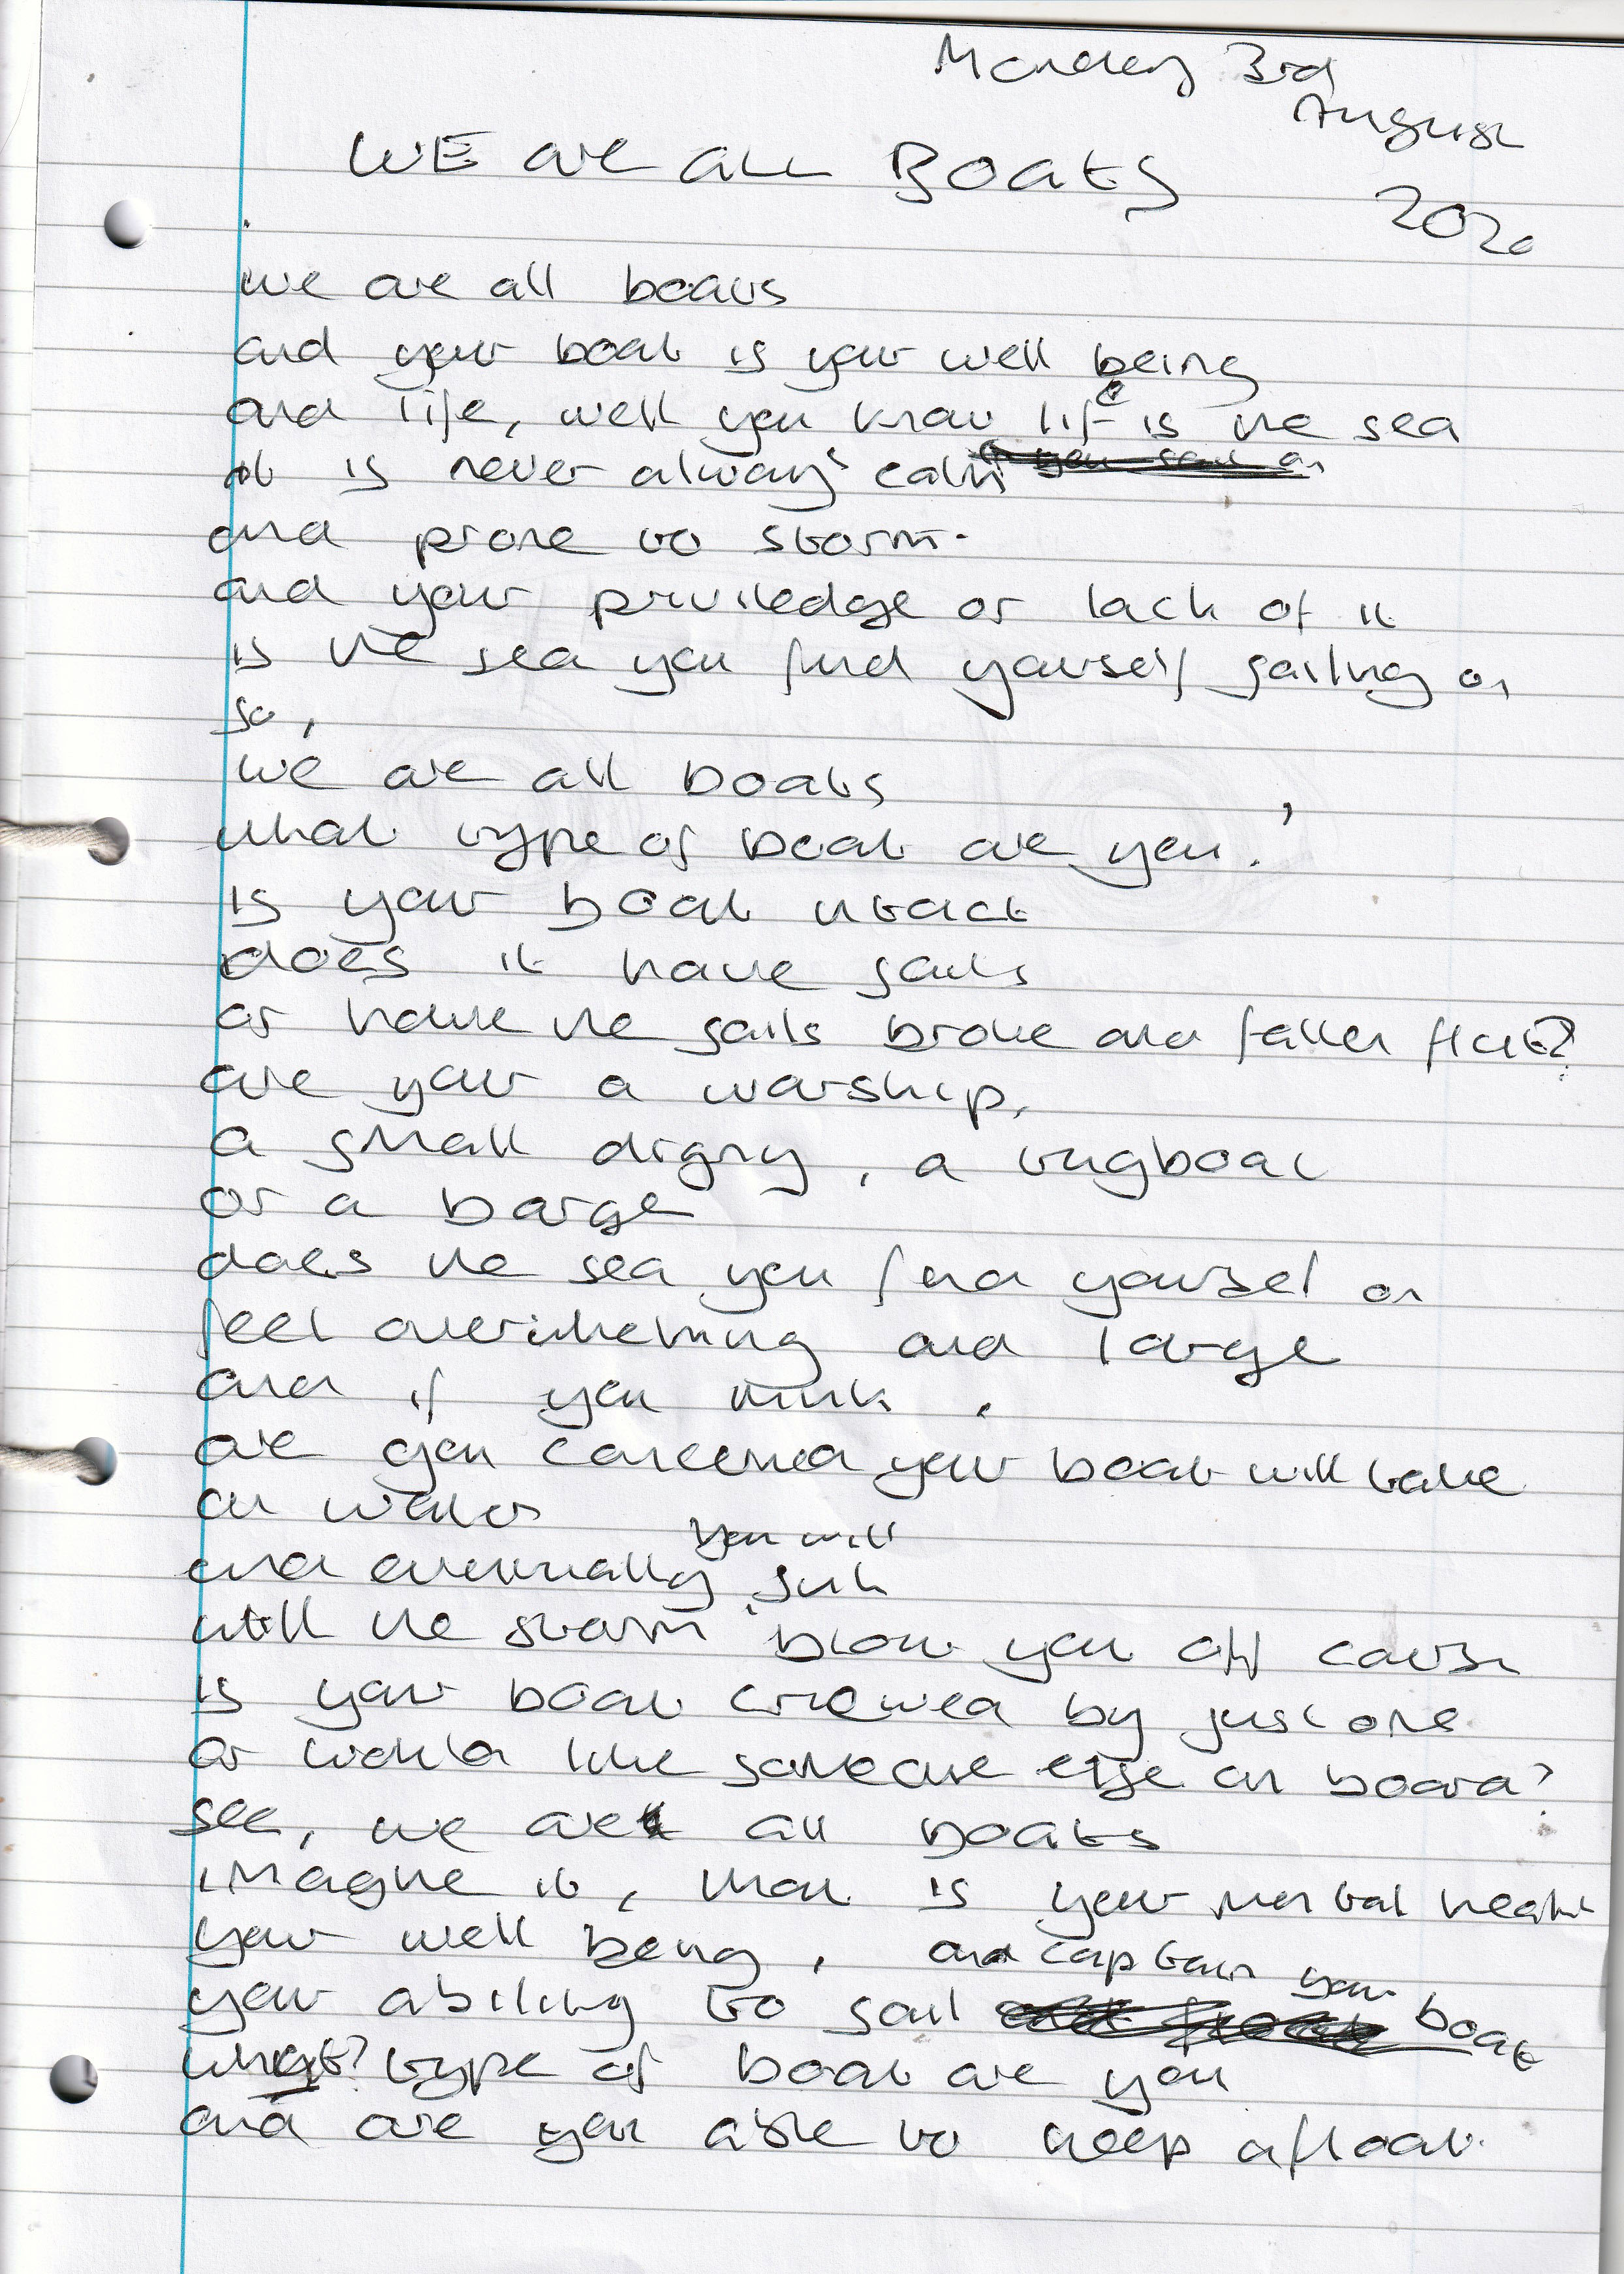 Monday 3rd
August
2020
WE are all Boats
we are all boats
and your boat is your well being
and life, well you know life is the sea
it is never always calm
and prone to storm.
and your priviledge or lack of it
is the sea you find yourself sailing on
so,
we are all boats
what type of boat are you?
is your boat intact
does it have sails
or have the sails broke and fallen flat?
are your a warship,
a small dingny, a tugboat
or a barge
does the sea you find yourself on
feel overwhelming and large
and if you think,
are you concerned your boat will take
on water
and eventually you will sink
will the storm blow you off course
is your boat crewed by just one
or would like someone else on board?
see, we are all boats
imagine it, that is your mental health
your well being,
your ability to sail and captain your boat
what? type of boat are you
and are you able to keep afloat.